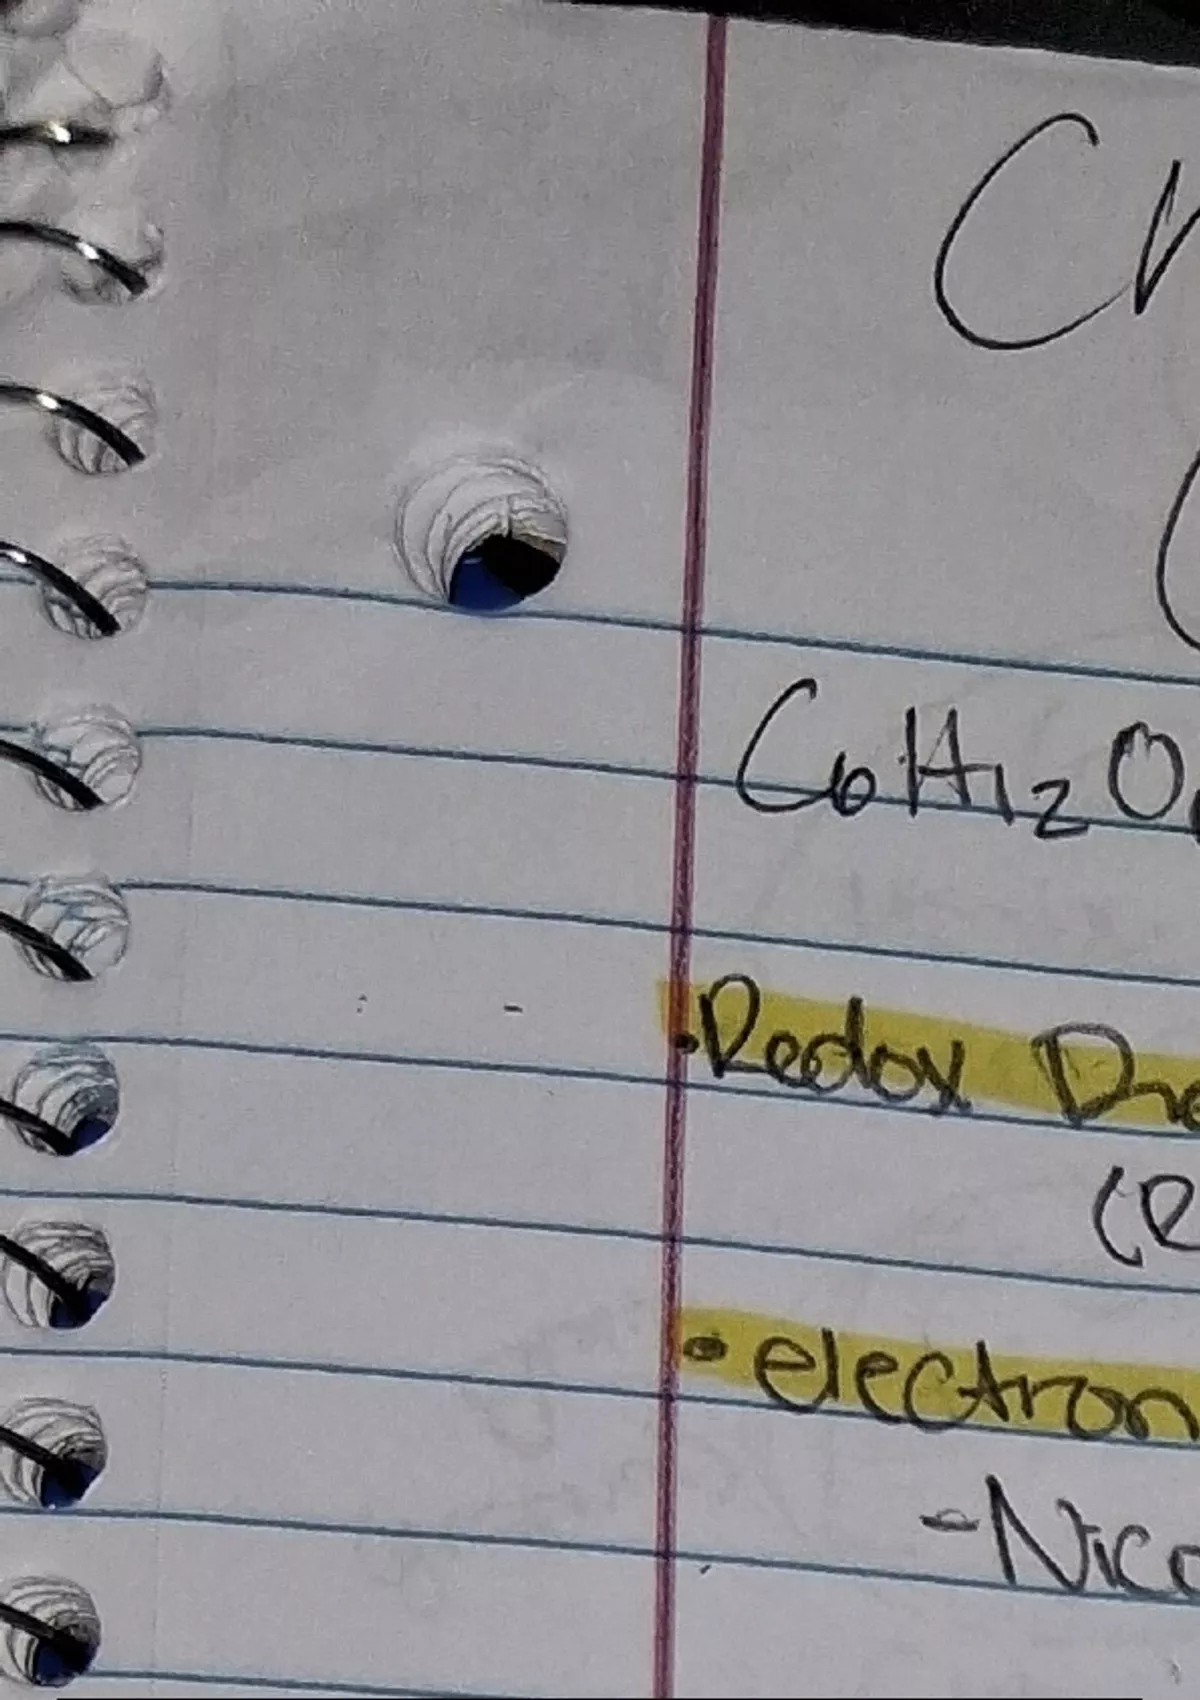 Ch
C6H12O
·Redox
• electron
-Nico